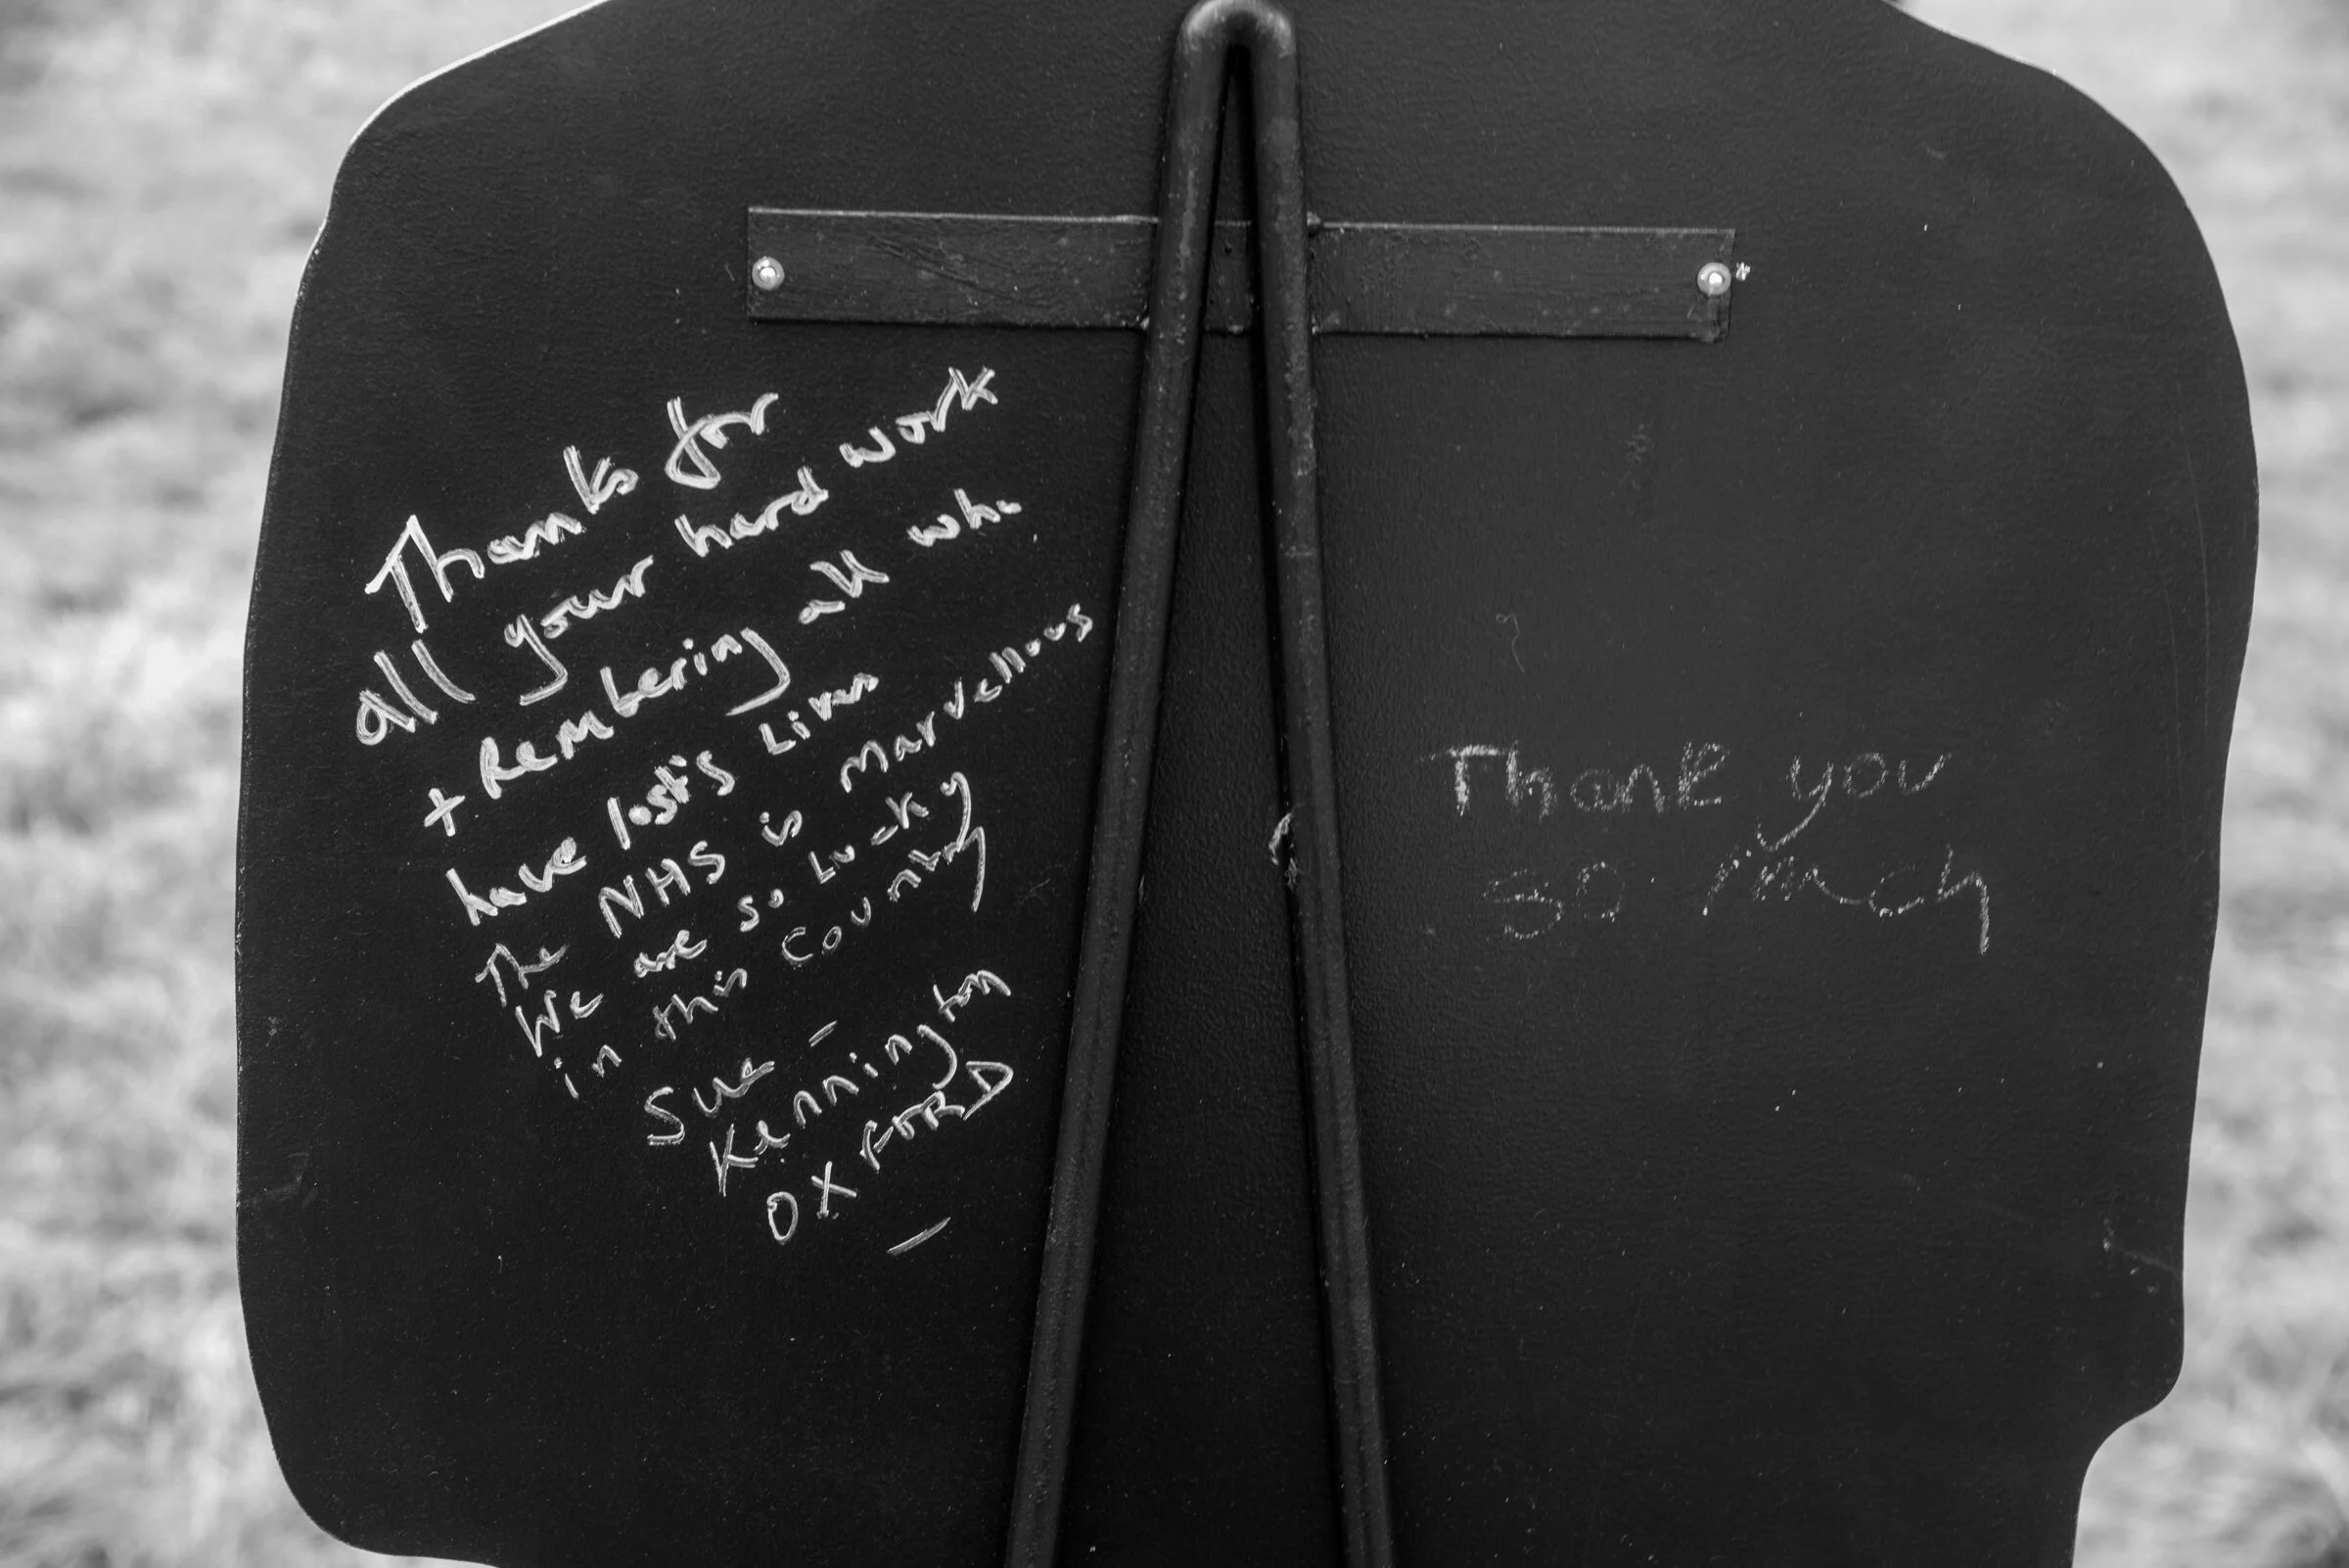 Thanks for
all your hard work
+ Rembering all who
have lost's Lives
The NHS is Marvellous
We are so Lucky
in this Country
Sue -
Kennington
OXFORD
Thank you
so much